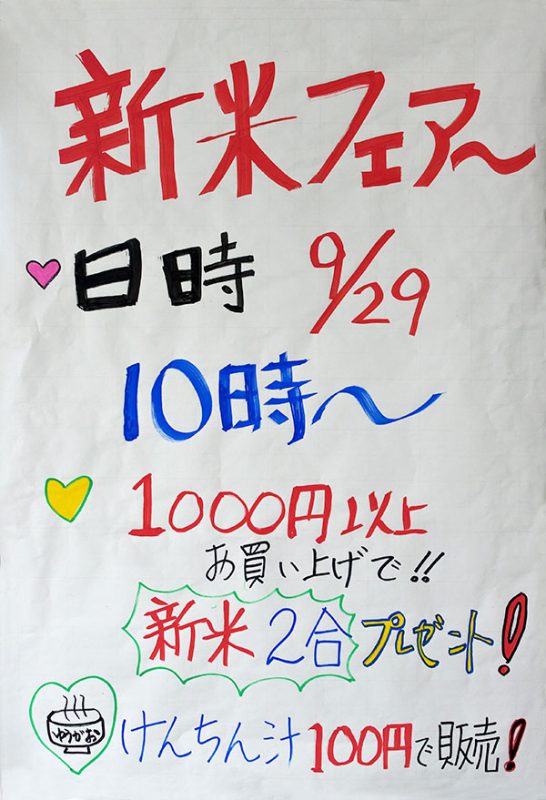 新米フェア〜
日時 9/29
10時〜
1000円以上
お買い上げで!!
新米2合プレゼント!
ゆうがお
けんちん汁100円で販売!